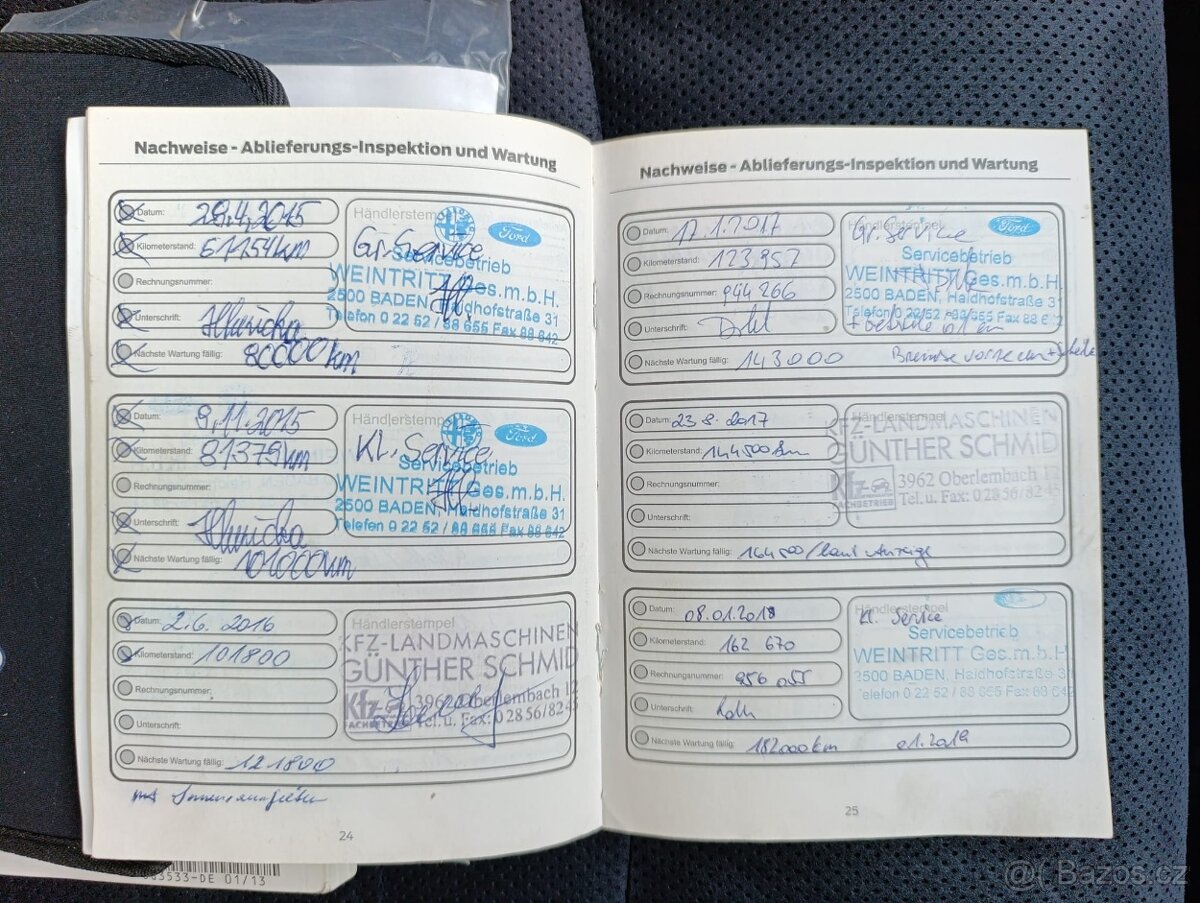 Nachweise - Ablieferungs-Inspektion und Wartung
Datum: 28.4.2015
Kilometerstand: 61154km
Rechnungsnummer:
Unterschrift:
Nächste Wartung fällig: 80000km
Händlerstempel
Gr. Service
Ford
Servicebetrieb
WEINTRITT Ges.m.b.H.
2500 BADEN, Haidhofstraße 31
Telefon 0 22 52 / 88 655 Fax 88 642
Datum: 9.11.2015
Kilometerstand: 81379km
Rechnungsnummer:
Unterschrift:
Nächste Wartung fällig: 101000km
Händlerstempel
Kl. Service
Ford
Servicebetrieb
WEINTRITT Ges.m.b.H.
2500 BADEN, Haidhofstraße 31
Telefon 0 22 52 / 88 655 Fax 88 642
Datum: 2.6. 2016
Kilometerstand: 101800
Rechnungsnummer:
Unterschrift:
Nächste Wartung fällig: 121800
Händlerstempel
KFZ-LANDMASCHINEN
GÜNTHER SCHMID
Kfz
FACHBETRIEB
3962 Oberlembach 12
Tel. u. Fax: 0 28 56/82 45
24
Nachweise - Ablieferungs-Inspektion und Wartung
Datum: 17.1.2017
Kilometerstand: 123.957
Rechnungsnummer: 944 266
Unterschrift:
Nächste Wartung fällig: 143000
Händlerstempel
Gr. Service
Ford
Servicebetrieb
WEINTRITT Ges.m.b.H.
2500 BADEN, Haidhofstraße 31
Telefon 0 22/52 /88 655 Fax 88 6
Bremse vorne
Datum: 23 8. 2017
Kilometerstand: 144500 km
Rechnungsnummer:
Unterschrift:
Nächste Wartung fällig: 164500 / laut Anzeige
Händlerstempel
KFZ-LANDMASCHINEN
GÜNTHER SCHMID
Kfz
FACHBETRIEB
3962 Oberlembach 12
Tel. u. Fax: 0 28 56/82 45
Datum: 08.01.2018
Kilometerstand: 162 670
Rechnungsnummer: 956 055
Unterschrift:
Nächste Wartung fällig: 182000km 01.2019
Händlerstempel
Kl. Service
Servicebetrieb
WEINTRITT Ges.m.b.H.
2500 BADEN, Haidhofstraße 31
Telefon 0 22 52 / 88 655 Fax 88 642
25
3533-DE 01/13
Bazos.cz